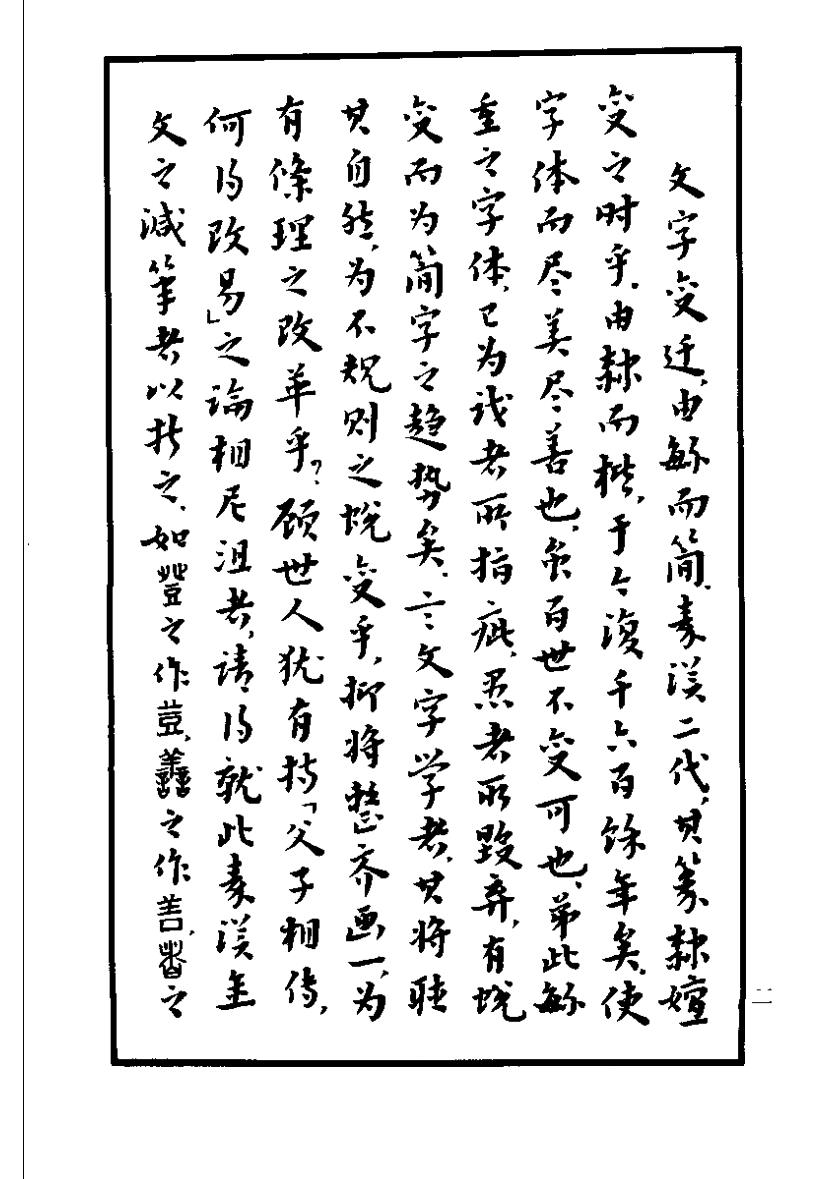 文字变迁,由緐而简。秦漢二代,其篆隸嬗
变之时乎。由隸而楷,于今復千六百餘年矣。使
字体而尽美尽善也,虽百世不变可也,弟此緐
重之字体,已为识者所指疵,愚者所毁弃,有蜕
变而为简字之趋势矣。言文字学者,其将听
其自然,为不规则之蜕变乎,抑将整齐画一,为
有條理之改革乎?顾世人犹有持「父子相传,
何得改易」之論相尼沮者,请得就此秦漢金
文之減筆者以折之。如之作,譱之作善,之
二